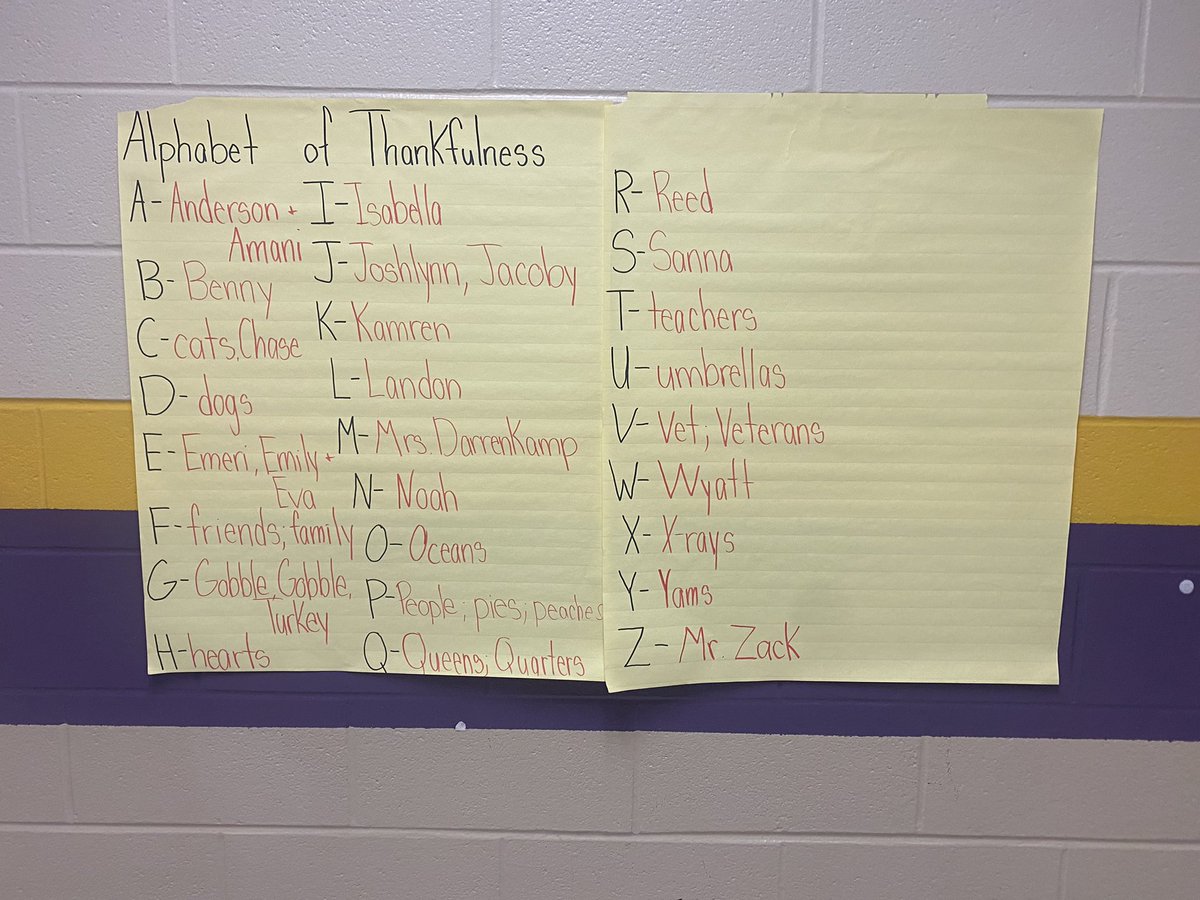 Alphabet of Thankfulness
A- Anderson +
Amani
B- Benny
C- cats, Chase
D- dogs
E- Emeri, Emily +
Eva
F- friends; family
G- Gobble, Gobble,
Turkey
H- hearts
I- Isabella
J- Joshlynn, Jacoby
K- Kamren
L- Landon
M- Mrs. DarrenKamp
N- Noah
O- Oceans
P- People; pies; peaches
Q- Queens; Quarters
R- Reed
S- Sanna
T- teachers
U- umbrellas
V- Vet; Veterans
W- Wyatt
X- X-rays
Y- Yams
Z- Mr. Zack